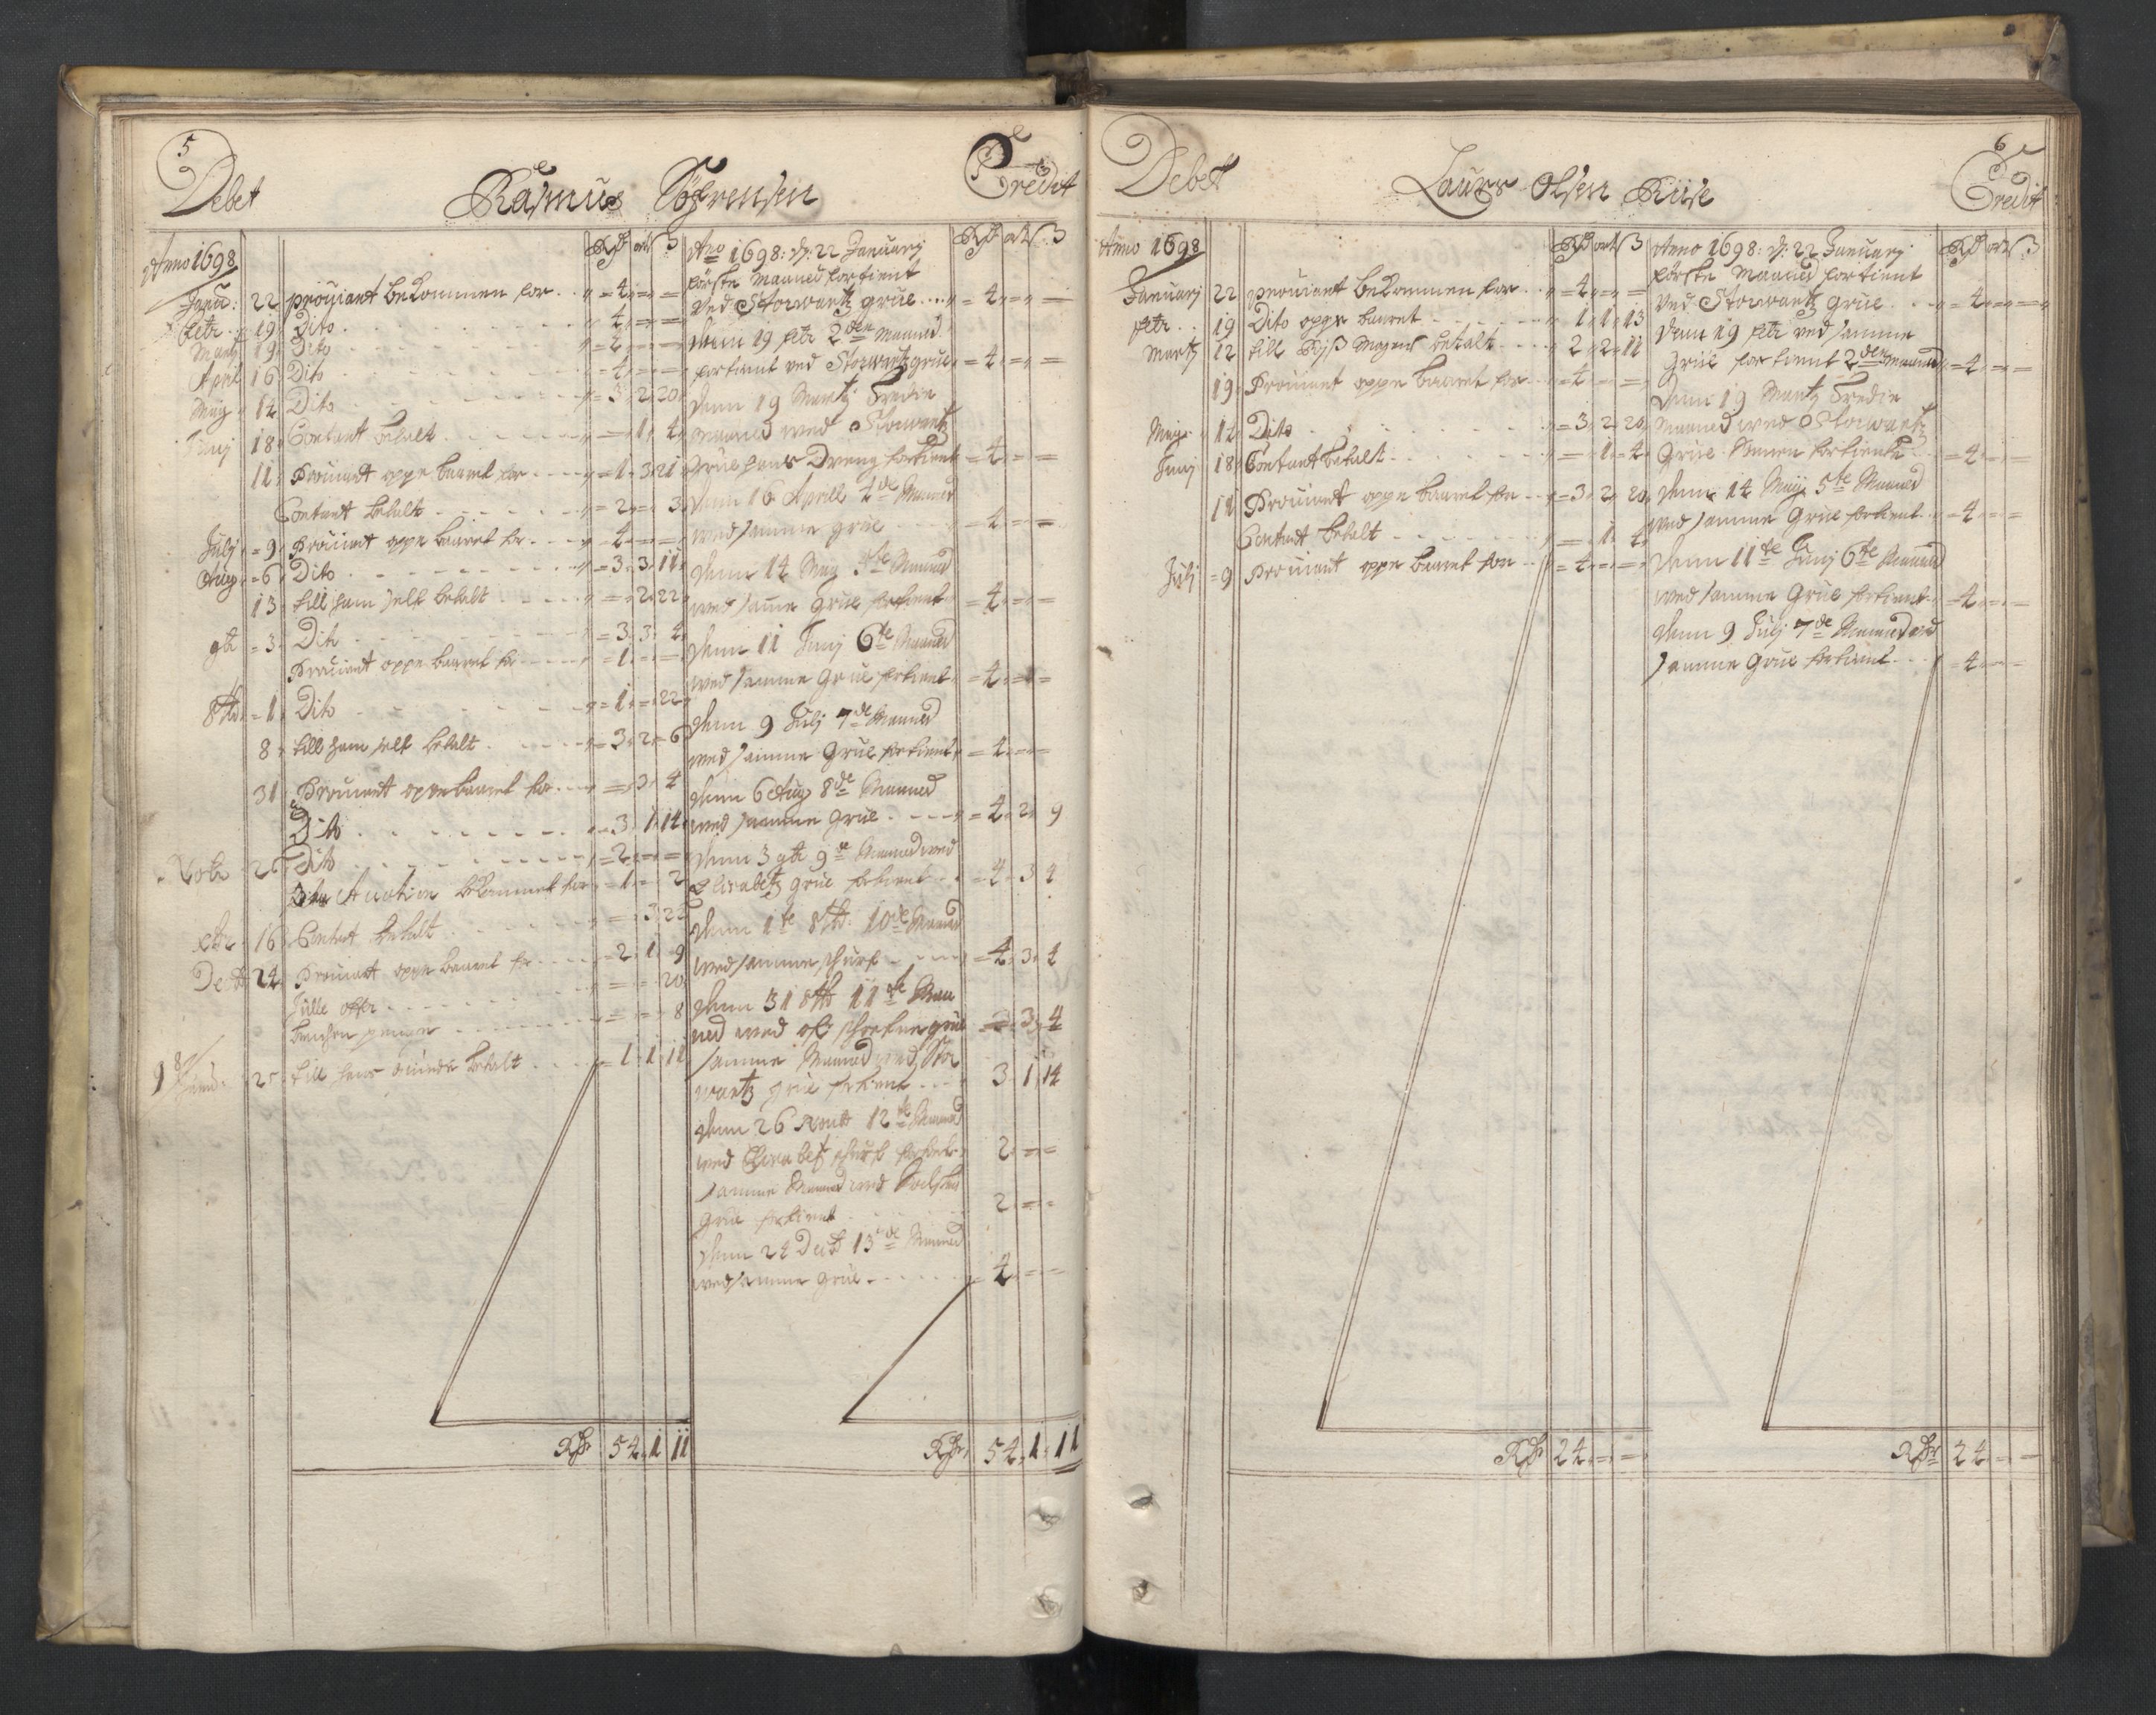 5
Debet
Rasmus Söfrensen
Credit
Anno 1698
Janu: 22 prouiant bekommen for = 4 = =
febr. 19 Dito 4 = =
Martj 19 Dito = 4 = =
April 16 Dito 4 = =
Maij 14 Dito = 3 2 20
Junij 18 Contant betalt = 1 4
11 Prouiant oppe baaret for = 1 3 21
Contant betalt = 2 = 3
Julij = 9 Prouiant oppe baaret for 4 = =
Aug = 6 Dito = 3 3 11
13 till ham self betalt = 2 22
= 3 Dito = 3 3 4
Prouiant oppe baaret for = 1 = =
= 1 Dito = 1 = 22
8 till ham self betalt = 3 2 6
31 Prouiant oppe baaret for = 3 4
Dito 3 1 14
Dito = 2 = =
Auction bekommet for = 1 = 2
16 Contant betalt = 3 22
24 Prouiant oppe baaret for = 2 1 9
20
= 8
till hans quinde betalt 1 1 11
Rdr 54 1 11
Ano 1698: d: 22 Januarj
förste Maaned fortient
Ved Storwartz grue = 4 = =
Denn 19 febr 2den Maaned
fortient ved Storwartz grue = 4 = =
Denn 19 Martj Tredie
Maaned wed Storwartz
Grue hans Dreng fortient = 4 = =
Denn 16 Aprill 4de Maaned
wed samme grue = 4 = =
Denn 14 May 5te Maaned
wed samme Grue fortient = 4 = =
Denn 11 Junj 6te Maaned
wed samme Grue fortient = 4 = =
Denn 9 Julj 7de Maaned
wed samme Grue fortient = 4 = =
Denn 6 Aug 8de Maaned
wed samme Grue = 4 2 9
Denn 3 9de Maaned wed
Elisabetz grue fortient = 4 3 4
Denn 1te 10de Maaned
wed samme schurf = 4 3 4
Denn 31 11te Maa
ned wed grue 3 4
samme Maaned wed Stor
wartz grue fortient 3 1 14
Denn 26 12te Maaned
wed Elisabet schurf fortient 2 = =
samme Maaned wed
Grue fortient 2 = =
Denn 24 Decb 13de Maaned
wed samme grue 4 = =
Rdr 54 1 11
6
Debet
Laurs Olsen Riise
Credit
Anno 1698
Januarj 22 prouiant bekommen for = 4 = =
febr. 19 Dito oppe baaret 1 1 13
Martj 12 till betalt 2 2 11
19 Prouiant oppe baaret for = 4 = =
Maij 14 Dito = 3 2 20
Junij 18 Contant betalt = 1 4
11 Prouiant oppe baaret for = 3 2 20
Contant betalt = 1 4
Julj = 9 Prouiant oppe baaret for = 4 = =
Rdr 24 = =
Anno 1698: d: 22 Januarj
förste Maaned fortient
ved Storwartz grue = 4 = =
Denn 19 febr ved samme
Grue fortient 2den Maaned = 4 = =
Denn 19 Martj Tredie
Maaned wed Storwartz
Grue fortient = 4 = =
Denn 14 Maij 5te Maaned
wed samme Grue fortient = 4 = =
Denn 11te Junij 6te Maaned
wed samme Grue fortient = 4 = =
Denn 9 Julj 7de Maaned wed
samme Grue fortient = 4 = =
Rdr 24 = =